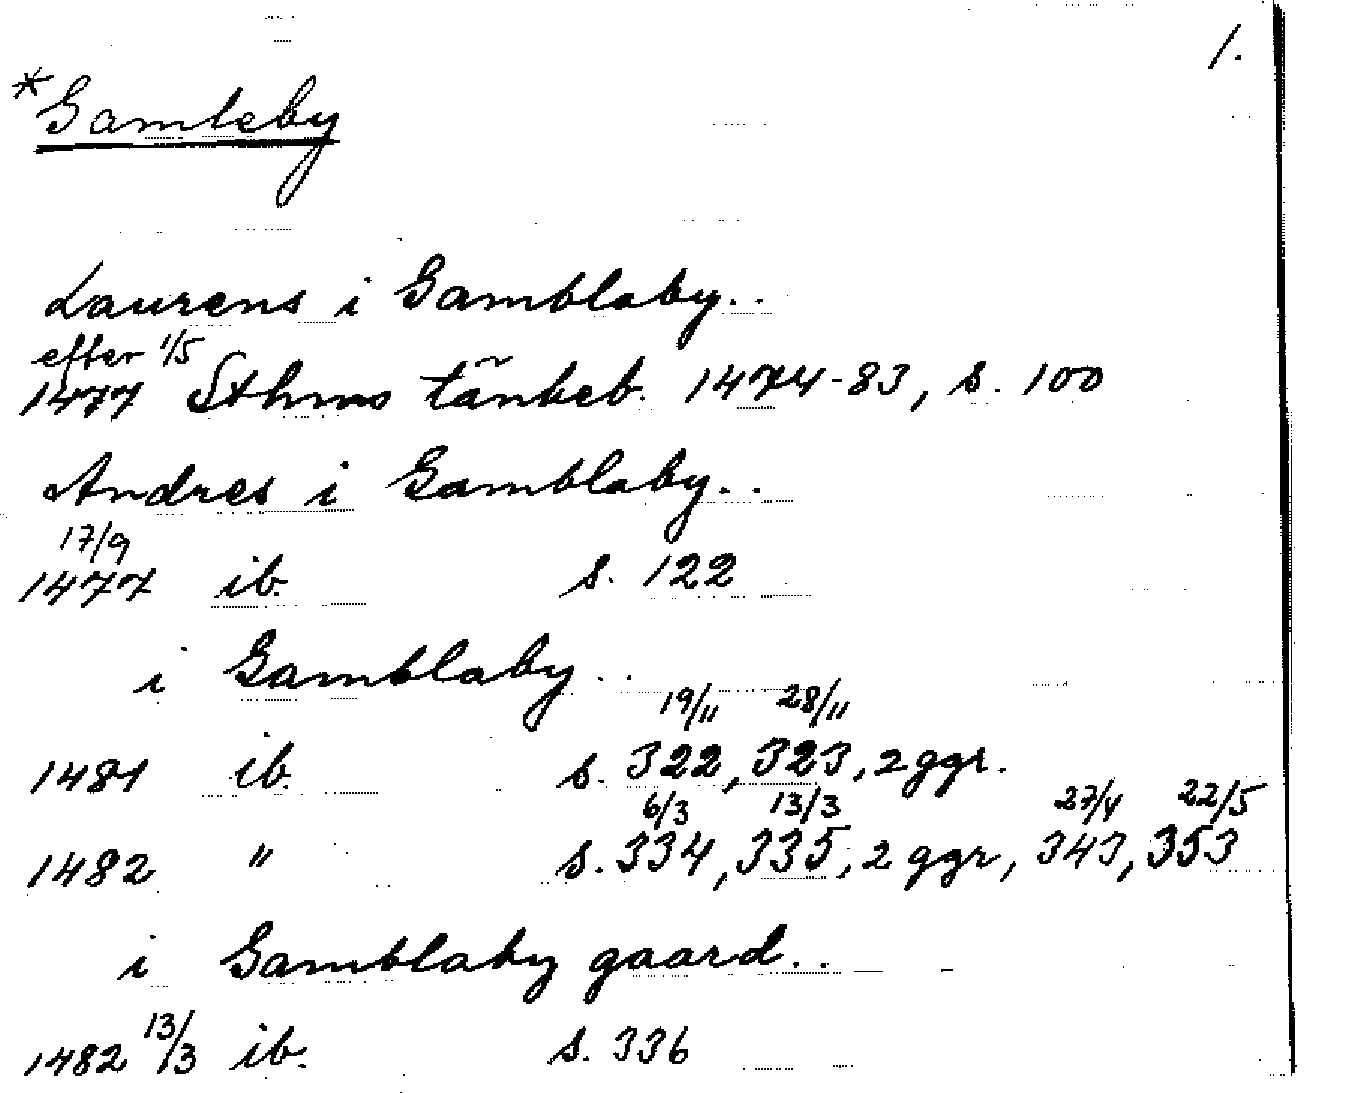 1.
*Gamleby
Laurens i Gamblaby..
efter 1/5
1477 Sthms tänkeb. 1474-83, s. 100
Andres i Gamblaby..
17/9
1477 ib. s. 122
i Gamblaby..
19/11 28/11
1481 ib. s. 322, 323, 2 ggr.
6/3 13/3 27/4 22/5
1482 " s. 334, 335, 2 ggr, 343, 353
i Gamblaby gaard..
1482 13/3 ib. s. 336